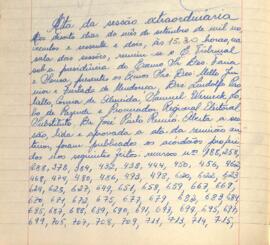 Ata da sessão extraordinária
Aos trinta dias do mês de setembro de mil no
vecentos e sessenta e dois, às 15.30 horas na
sala das sessões, reuniu-se o E. Tribunal
sob a presidência do Exmo Sr. Des. Faria
e Souza, presentes os Exmos Srs. Des. Mello Ju
nior e Furtado de Mendonça, Drs. Lindolfo
Costa de Almeida, Werneck
e o Procurador Regional Eleitoral
Substituto Dr. José Pinto Pereira. Aberta a ses
são, lida e aprovada a ata da reunião an
terior, foram publicados os acordãos proferi
dos nos seguintes feitos: recursos nºs
288, 378, 384, 432, 438, 444, 450, 456, 462
468, 474, 480, 486, 492, 498, 620, 622, 623
624, 625, 627, 649, 651, 658, 659, 667, 668,
670, 671, 672, 675, 677, 679, 682, 683, 684
685, 687, 688, 689, 690, 691, 693, 694, 695, 697,
699, 705, 707, 708, 709, 711, 713, 714, 715,